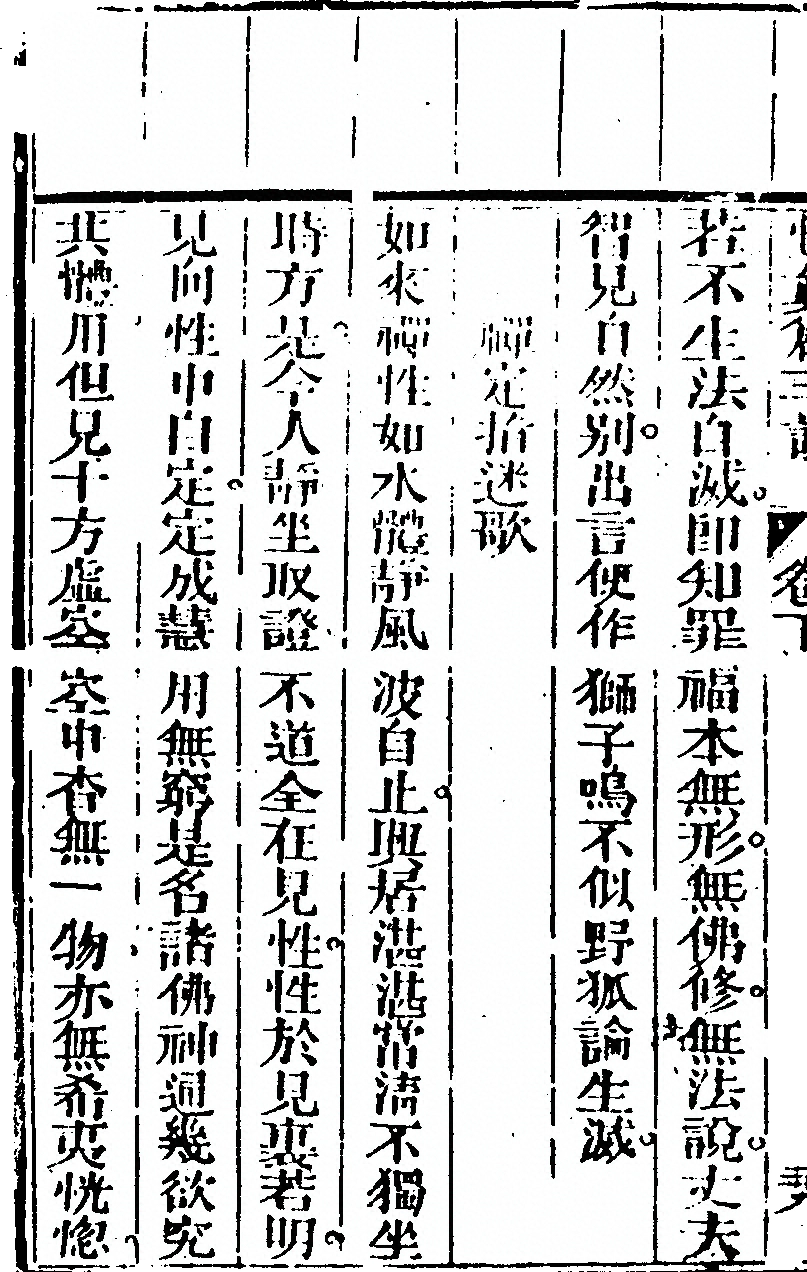 若不生法自滅即知罪福本無形無佛修無法說丈夫
智見自然别出言便作獅子鳴不似野狐論生滅
禪定指迷歌
如來禪性如水體靜風波自止興居湛湛常清不獨坐
時方是今人靜坐取證不道全在見性性於見裏若明
見向性中自定定成慧用無窮是名諸佛神通幾欲究
共體用但見十方虛空空中杳無一物亦無希夷恍惚